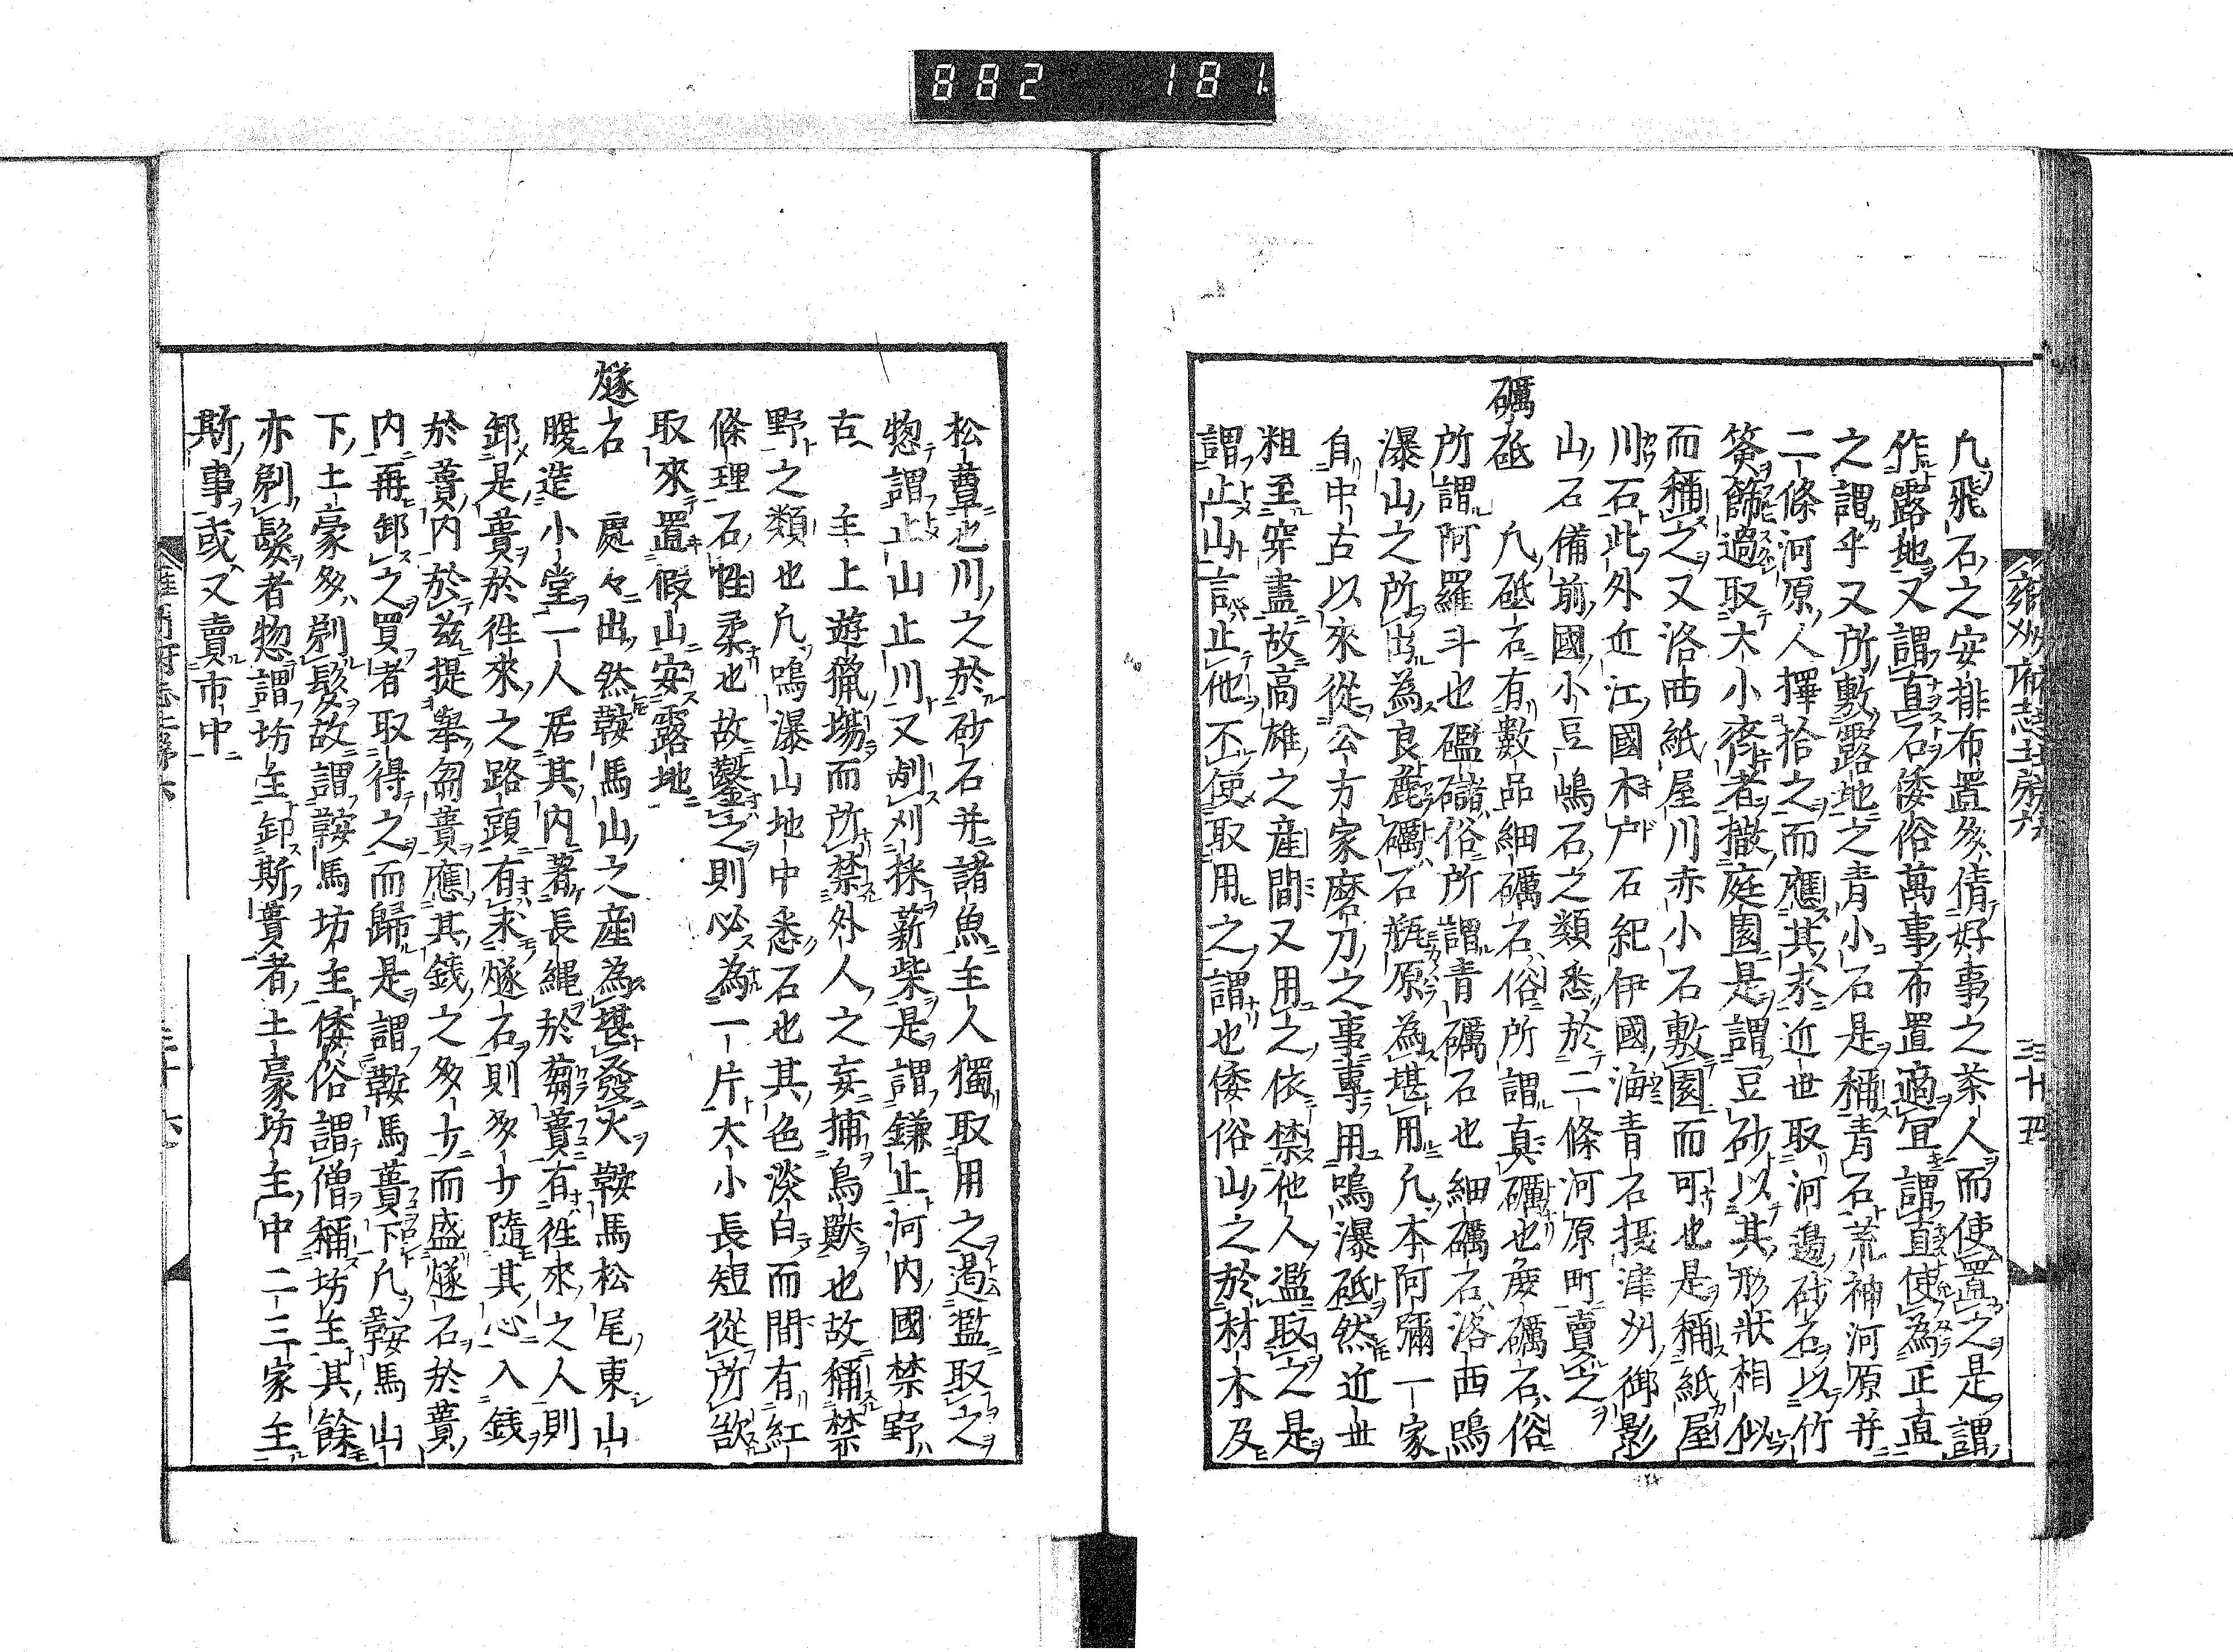 882 181
雍州府志土產六
三十四
凢飛石之安排布置多倩好事之茶人而使置之是謂
作露地又謂直石倭俗萬事布置適宜謂直使為正直
之謂乎又所敷露地之青小石是稱青石荒神河原并
二條河原人擇拾之而應其求近世取河邊砂石以竹
簀篩過取大小齊者撒庭園是謂豆砂以其形狀相似
而稱之又洛西紙屋川赤小石敷園而可也是稱紙屋
川石此外近江國木戶石紀伊國海青石攝津州御影
山石備前國小豆嶋石之類悉於二條河原町賣之
礪砥　凢砥石有數品細礪石俗所謂真礪也麁礪石俗
所謂阿羅斗也礛䃴俗所謂青礪石也細礪石洛西鳴
瀑山之所出為良麁礪石瓶原為堪用凢本阿彌一家
自中古以來從公方家磨刀之事專用鳴瀑砥然近世
粗至穿盡故高雄之産間又用之依禁他人濫取之是
謂止山言止他不使取用之謂也倭俗山之於材木及
松蕈也川之於砂石并諸魚主人獨取用之遏濫取之
惣謂止山止川又剏刈採薪柴是謂鎌止河内國禁野
古　主上遊獵場而所禁外人之妄捕鳥獸也故稱禁
野之類也凢鳴瀑山地中悉石也其色淡白而間有紅
條理石性柔也故鑿之則必為一片大小長短從所欲
取來置假山安露地
燧石　處々出然鞍馬山之産為堪發火鞍馬松尾東山
腹造小堂一人居其内著長繩於蒭蕢有往來之人則
卸是蕢於往來之路頭有求燧石則多少隨其心入錢
於蕢内於茲提舉蒭蕢應其錢之多少而盛燧石於蕢
内再卸之買者取得之而歸是謂鞍馬蕢下凢鞍馬山
下土豪多剃髮故謂鞍馬坊主倭俗謂僧稱坊主其餘
亦剃髮者惣謂坊主卸斯蕢者土豪坊主中二三家主
斯事或又賣市中